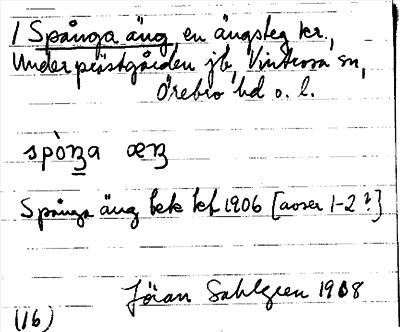 / Spånga äng en ängsteg kr.,
Under prästgården jb, Vintrosa sn,
Örebro hd o. l.
spòŋa æŋ
Spånga äng bek kbl 1906 [avser 1-2?]
Jöran Sahlgren 1908
(16)